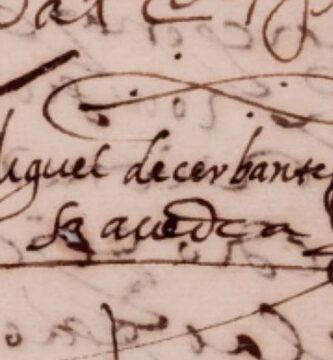 Miguel decerbante
Saavedra